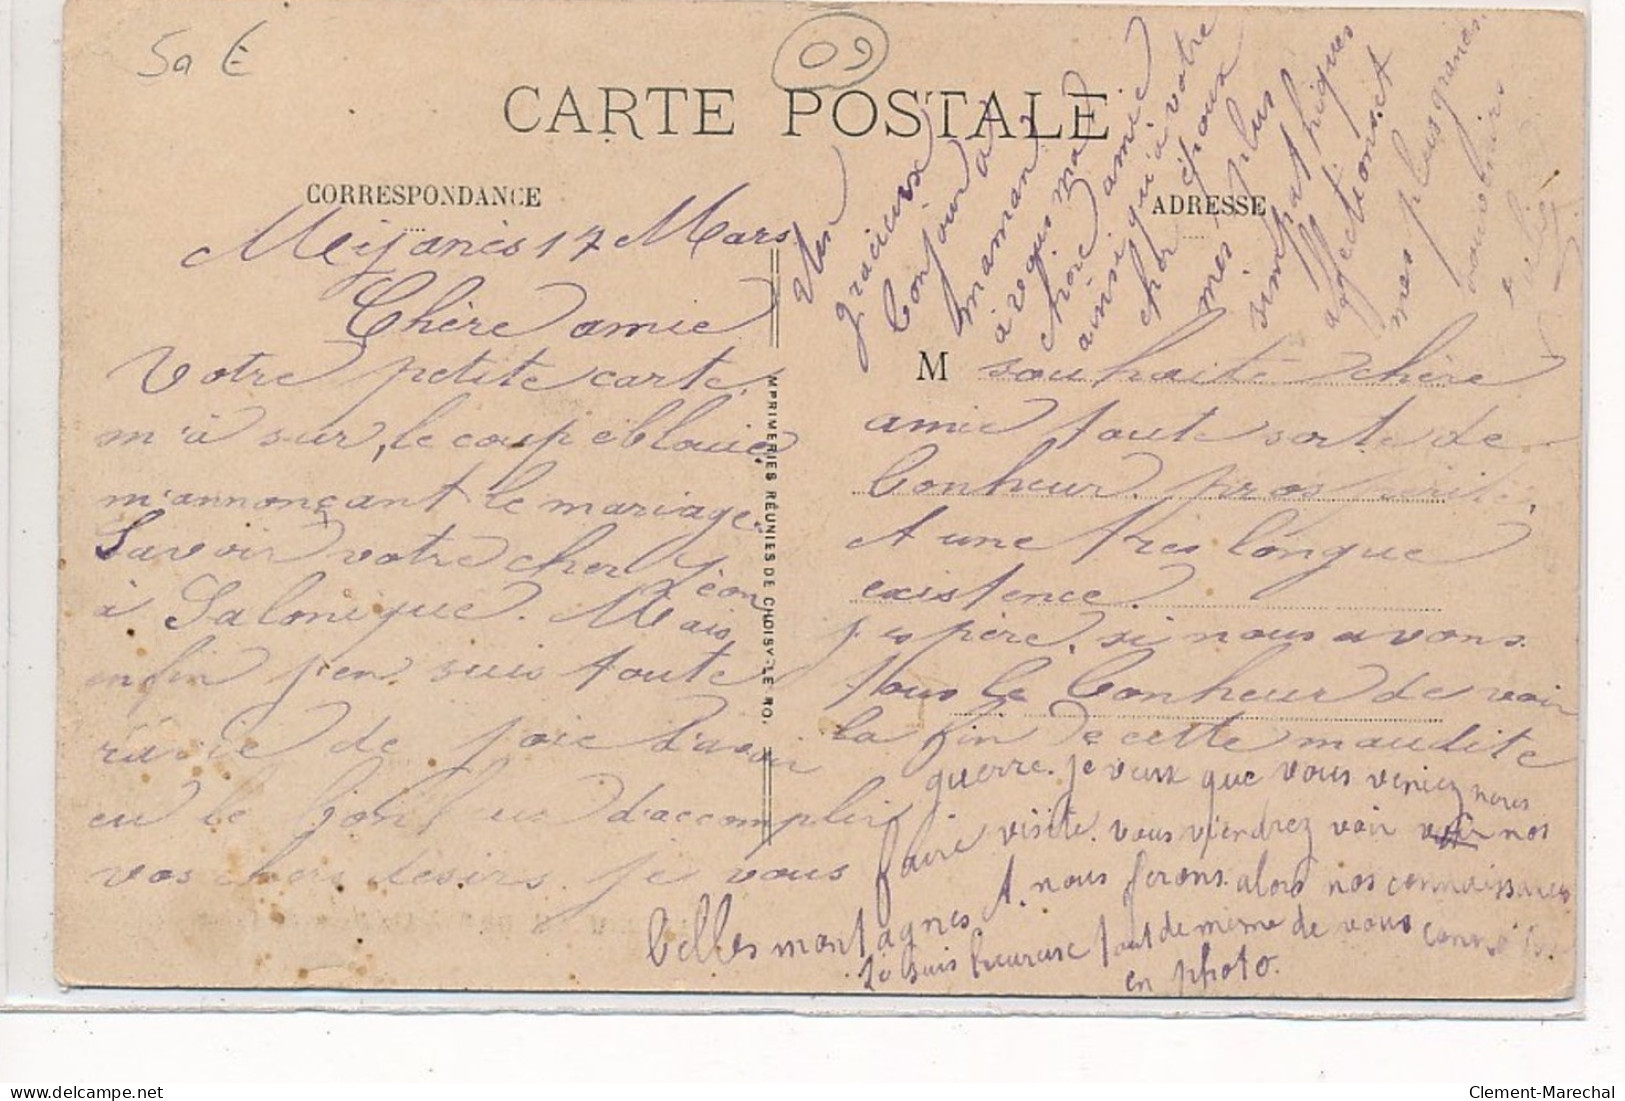 5a E
09
CARTE POSTALE
CORRESPONDANCE
ADRESSE
Mijanès 17 Mars
Chère amie
Votre petite carte
m'a sur, le coup eblouie
m'annonçant le mariage.
Savoir votre cher Léon
à Salonique. Mais
enfin j'en suis toute
ravie de joie d'avoir
eu le bonheur d'accomplir
vos chers desirs. je vous
IMPRIMERIES RÉUNIES DE CHOISY-LE-RO.
M souhaite chère
amie toute sorte de
bonheur. prospérité,
et une tres longue
existence.
j'espère. si nous avons.
tous le bonheur de voir
la fin de cette maudite
guerre. je veux que vous veniez nous
faire visite. vous viendrez voir nos
belles montagnes et. nous ferons. alors nos connaissances
je suis heureuse tout de meme de vous
en photo.
Un
gracieux
bonjour a
maman
à reçus ma
chère amie
ainsi qu'à votre
cher époux
mes plus
simpathiques
affections. et
mes plus grands.
Clement-Marechal
www.delcampe.net